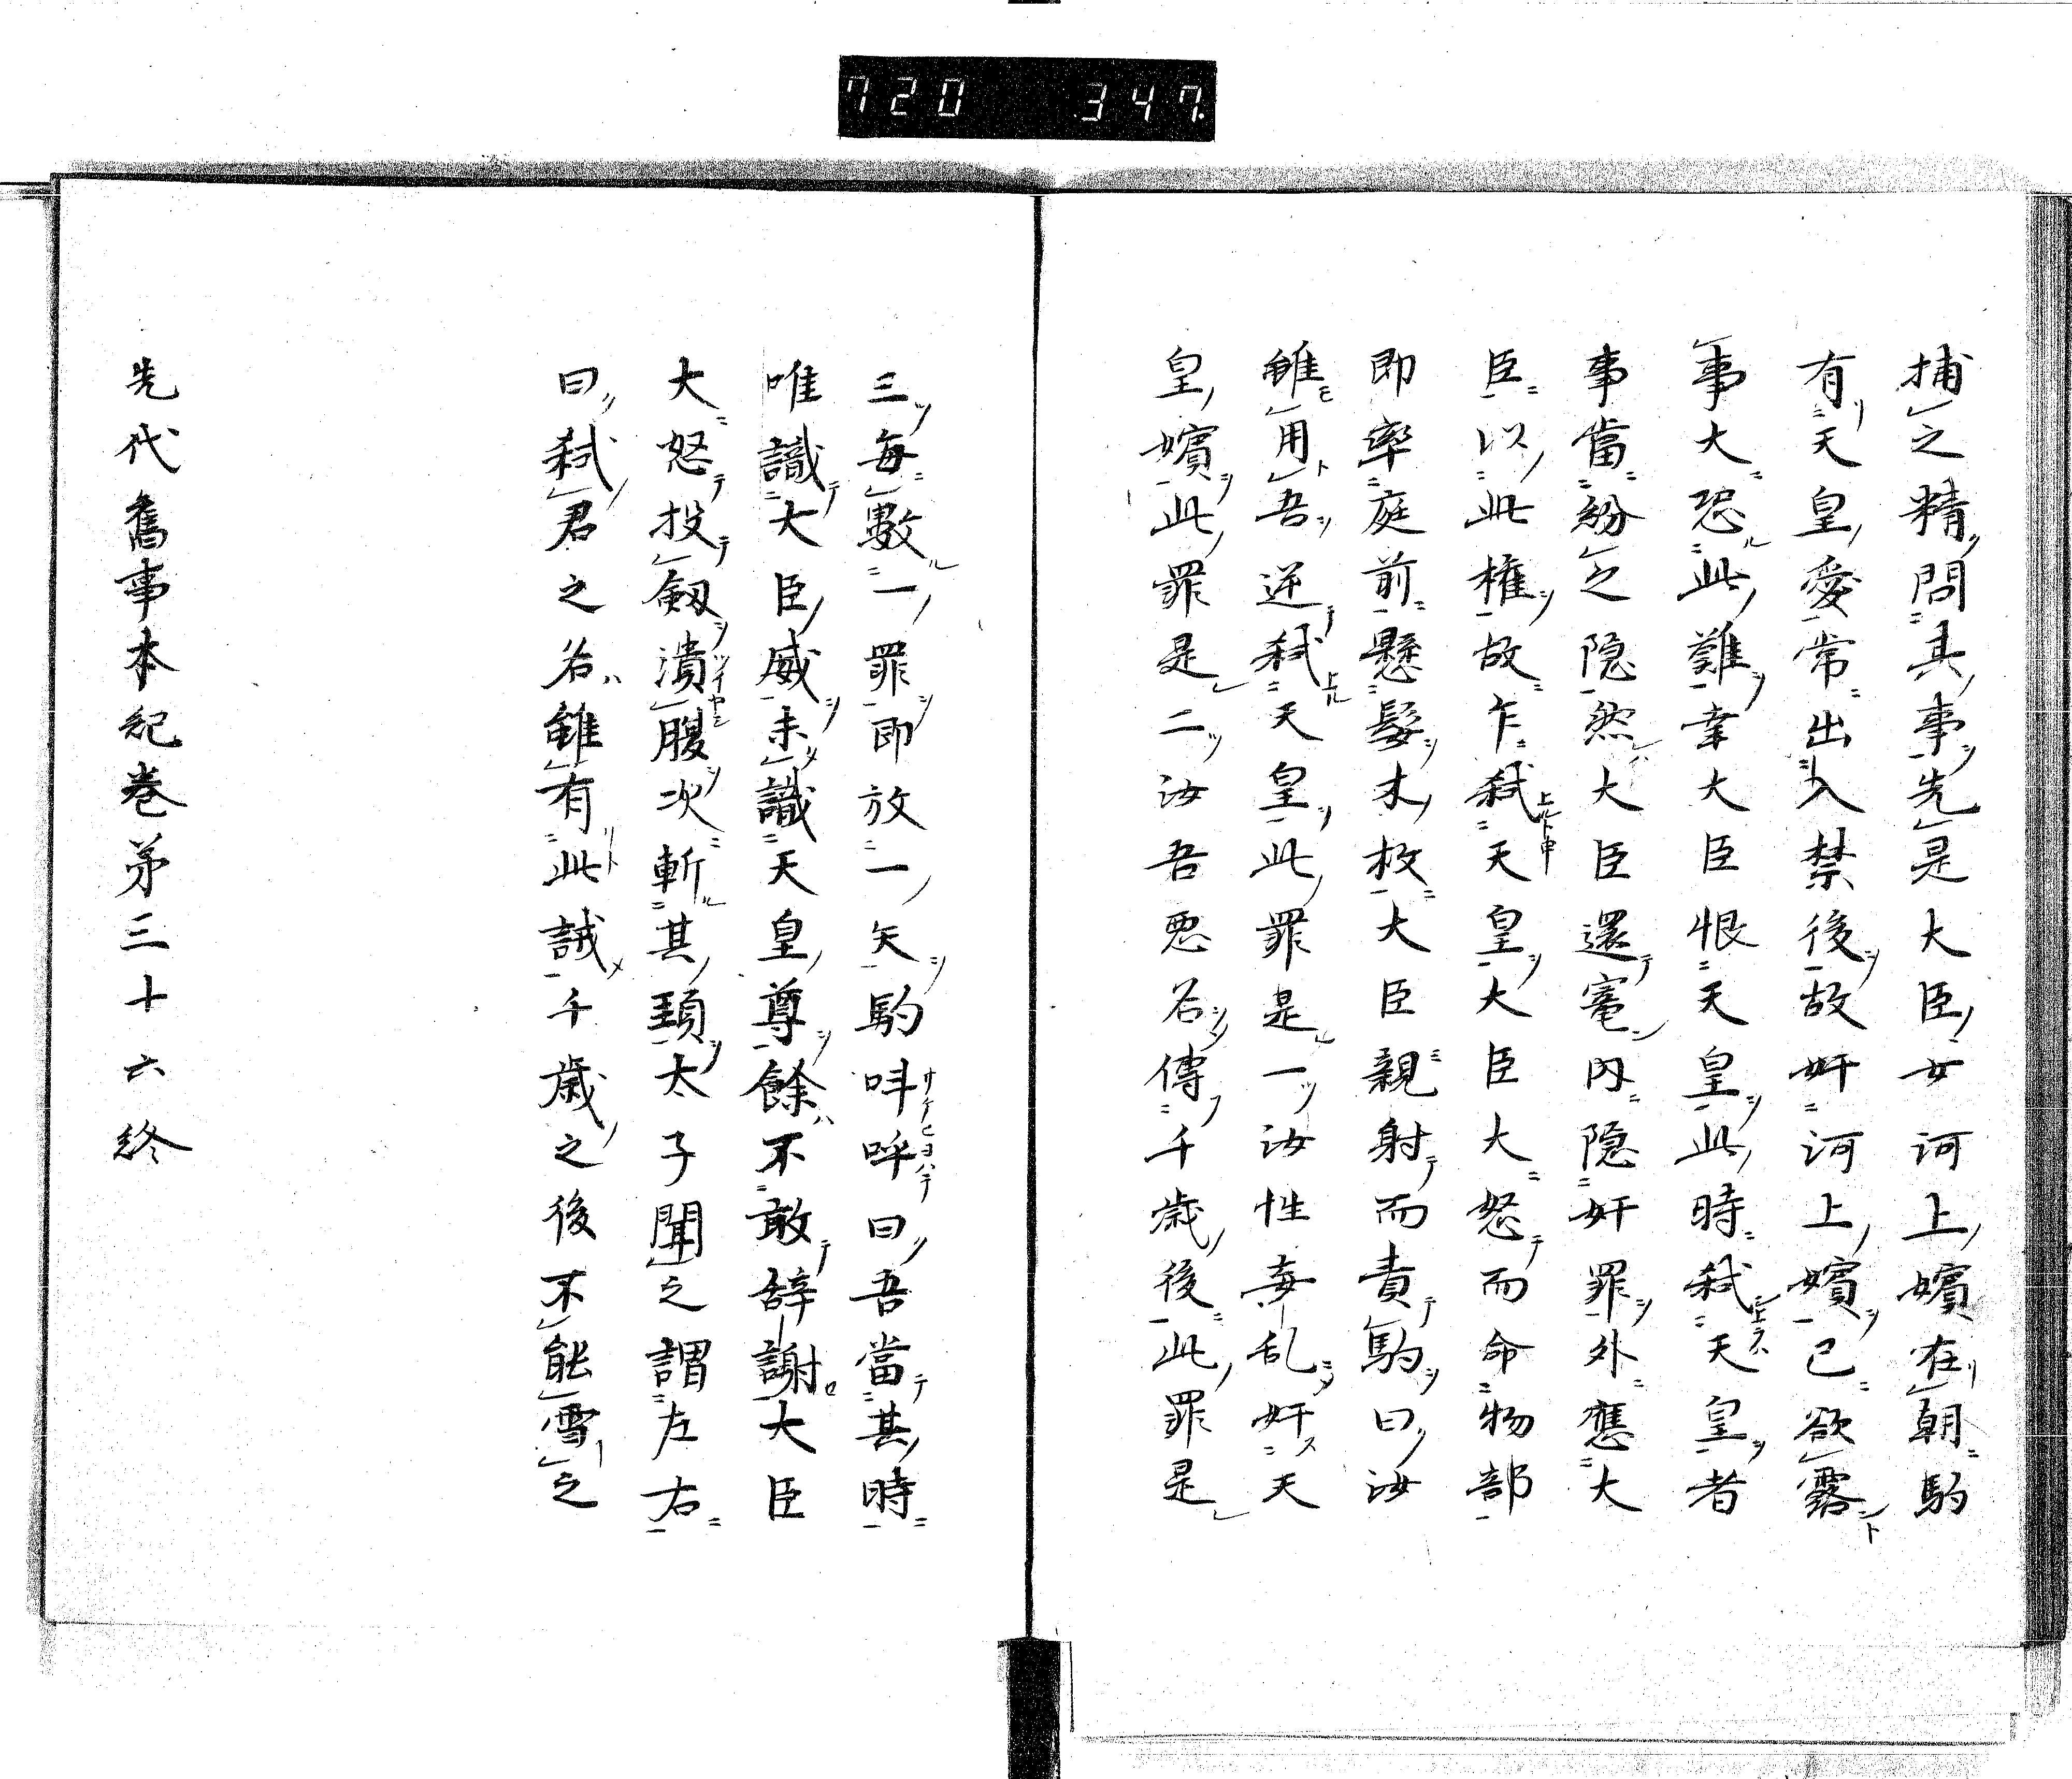 720 347.
捕之精問其事先是大臣女河上嬪在朝駒
有天皇愛常出入禁後故奸河上嬪已欲露
事大恐此難幸大臣恨天皇此時弑天皇者
事當紛之隠然大臣還寵内隠奸罪外應大
臣以此権故乍弑天皇大臣大怒而命物部
即率庭前懸髮木枚大臣親射而責駒曰汝
雖用吾逆弑天皇此罪是一汝性毒乱奸天
皇嬪此罪是二汝吾悪名傳千歳後此罪是
三毎數一罪即放一矢駒呌呼曰吾當其時
唯識大臣威未識天皇尊餘不敢辞謝大臣
大怒投剱潰腹次斬其頚太子聞之謂左右
曰弑君之名雖有此誠千歳之後不能雪之
先代舊事本紀巻第三十六終